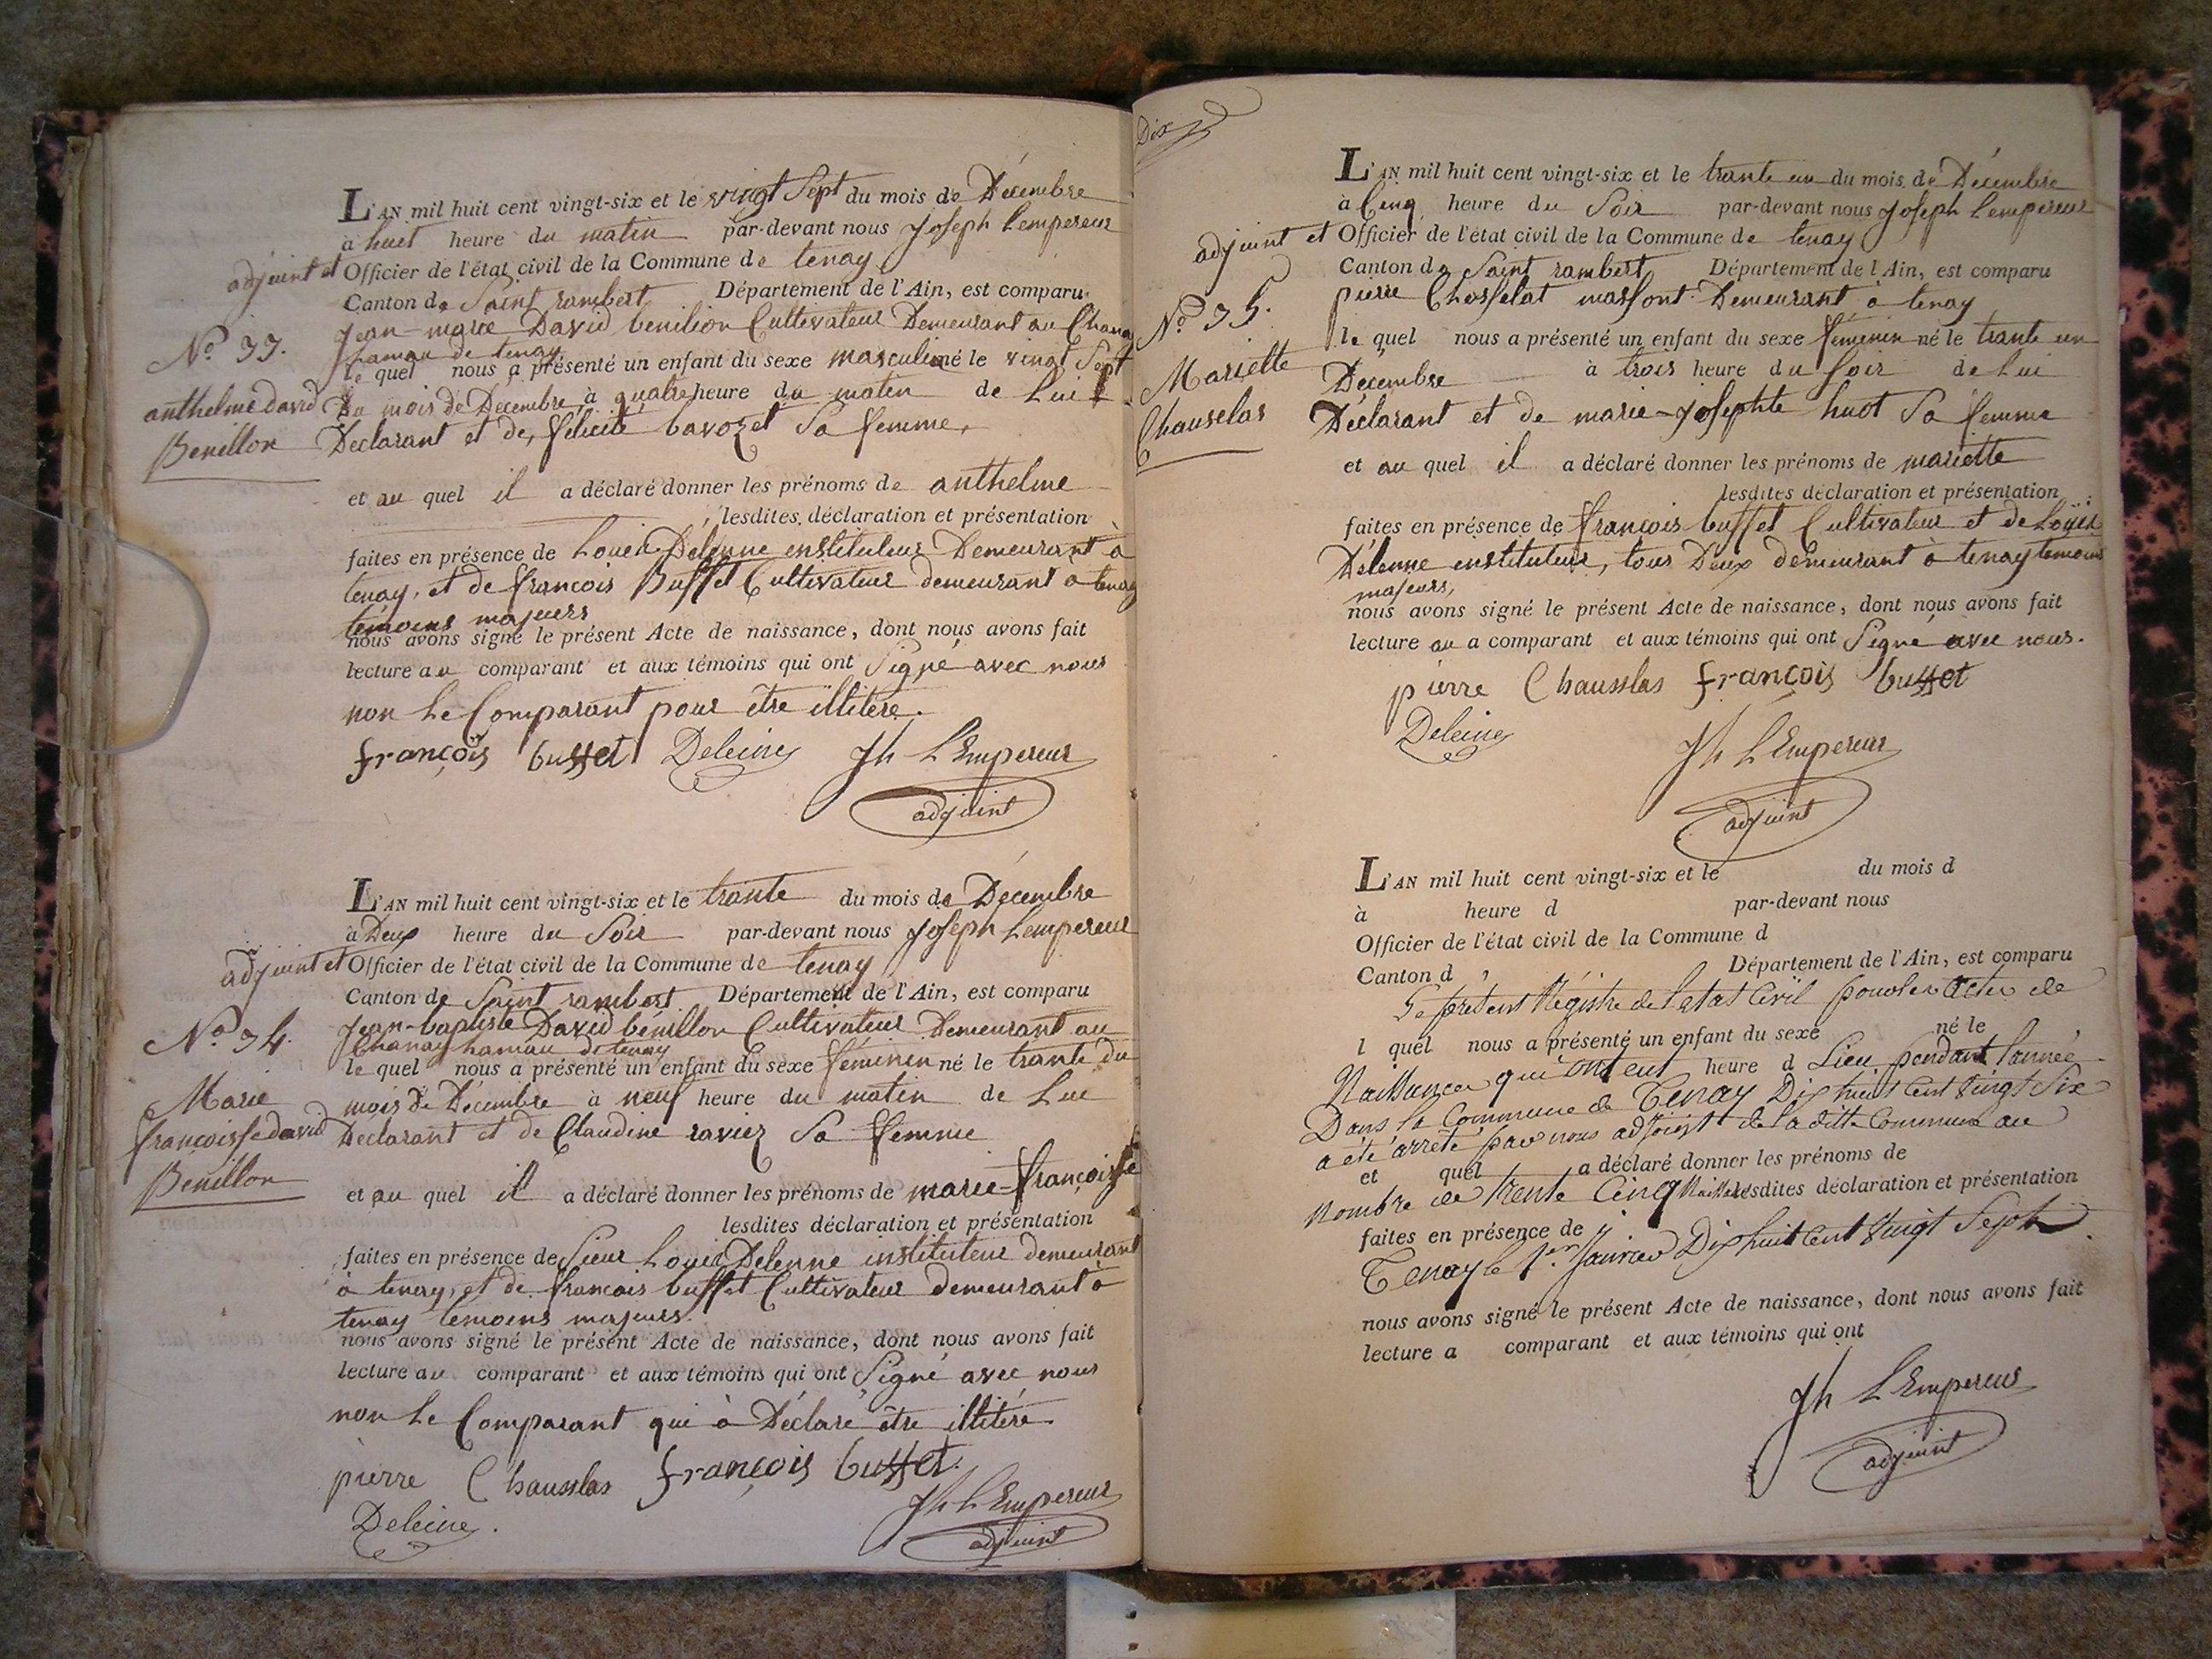 L'AN mil huit cent vingt-six et le vingt Sept du mois de Décembre
à huit heure du matin par-devant nous Joseph Lempereur
adjuint et Officier de l'état civil de la Commune de tenay
Canton de Saint rambert Département de l'Ain, est comparu
Jean-marie David benilion Cultivateur Demeurant au Chanay
hamau de tenay
N° 33.
le quel nous a présenté un enfant du sexe masculin né le vingt Sept
anthelme david
Du mois de Decembre à quatre heure du matin de Lui
Benillon
Declarant et de, félicité bavozet Sa femme,
et au quel il a déclaré donner les prénoms de anthelme
lesdites déclaration et présentation
faites en présence de Louis Delenne enstituteur Demeurant à
tenay, et de françois Buffet Cultivateur demeurant à tenay
témoins majeurs
nous avons signé le présent Acte de naissance, dont nous avons fait
lecture au comparant et aux témoins qui ont Signé avec nous
non Le Comparant pour être illitére.
françois buffet Deleine Jh L'Empereur
adjuint
L'AN mil huit cent vingt-six et le trante du mois de Décembre
à Deux heure du Soir par-devant nous Joseph Lempereur
adjuint et Officier de l'état civil de la Commune de tenay
Canton de Saint rambert Département de l'Ain, est comparu
N° 34.
Jean-baptiste David bénillon Cultivateur Demeurant au
Chanay hamau de tenay
le quel nous a présenté un enfant du sexe féminin né le trante du
Marie
mois de Décembre à neuf heure du matin de Lui
françoisse david
Déclarant et de Claudine ravier Sa femme
Benillon
et au quel il a déclaré donner les prénoms de marie-françoisse
lesdites déclaration et présentation
faites en présence de Sieur Louis Delenne instituteur demeurant
à tenay, et de françois buffet Cultivateur demeurant à
tenay temoins majeurs.
nous avons signé le présent Acte de naissance, dont nous avons fait
lecture au comparant et aux témoins qui ont Signé avec nous
non Le Comparant qui à Déclaré être illitéré
pierre Chausslas françois buffet.
Deleine. Jh L'Empereur
adjuint
Dix
L'AN mil huit cent vingt-six et le trante un du mois de Décembre
à Cinq heure du Soir par-devant nous Joseph Lempereur
adjuint et Officier de l'état civil de la Commune de tenay
Canton de Saint rambert Département de l'Ain, est comparu
pierre Chosselat massont Demeurant à tenay
N° 35.
le quel nous a présenté un enfant du sexe féminin né le trante un
Mariette
Décembre à trois heure du soir de Lui
Chauselas
Déclarant et de marie-josephte huot Sa femme
et au quel il a déclaré donner les prénoms de mariette
lesdites déclaration et présentation
faites en présence de françois buffet Cultivateur et de Louis
Delenne enstituteur, tous Deux demeurant à tenay temoins
majeurs,
nous avons signé le présent Acte de naissance, dont nous avons fait
lecture au a comparant et aux témoins qui ont Signé avec nous.
pierre Chausslas françois buffet
Deleine Jh L'Empereur
adjuint
L'AN mil huit cent vingt-six et le du mois d
à heure d par-devant nous
Officier de l'état civil de la Commune d
Canton d Département de l'Ain, est comparu
Le présent Régistre de l'etat Civil pour les actes de
l quel nous a présenté un enfant du sexe né le
Naissance qui ont eut heure d Lieu pendant l'année
Dans la Commune de Tenay Dix huit Cent Vingt Six
a été arrêté par nous adjoint de la ditte Commune au
et quel a déclaré donner les prénoms de
nombre de trente Cinq lesdites déclaration et présentation
faites en présence de
Tenay le 1er Janvier Dix huit Cent Vingt Sept
nous avons signé le présent Acte de naissance, dont nous avons fait
lecture a comparant et aux témoins qui ont
Jh L'Empereur
adjuint